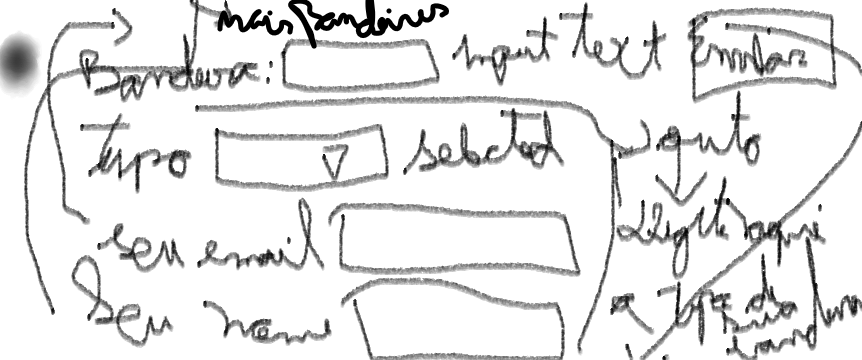 mais Bandeiras
Bandeira: input text Enviar
tipo selected
seu email
Seu nome
Digite aqui
a tipo da
sua